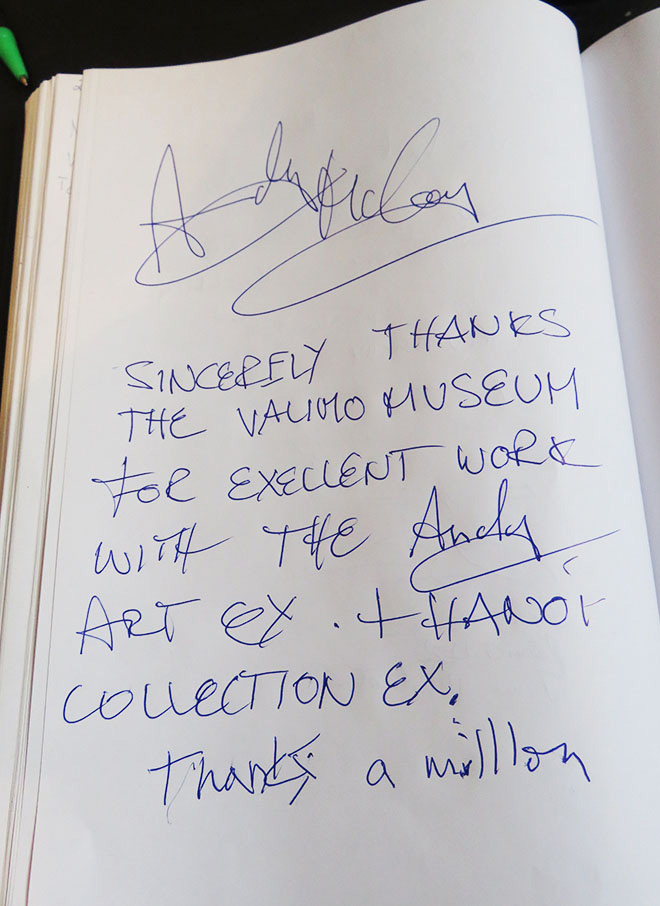 Andy McCoy
SINCERELY THANKS
THE VALIMO MUSEUM
FOR EXELLENT WORK
WITH THE Andy
ART EX. + HANOI
COLLECTION EX.
Thanks a million